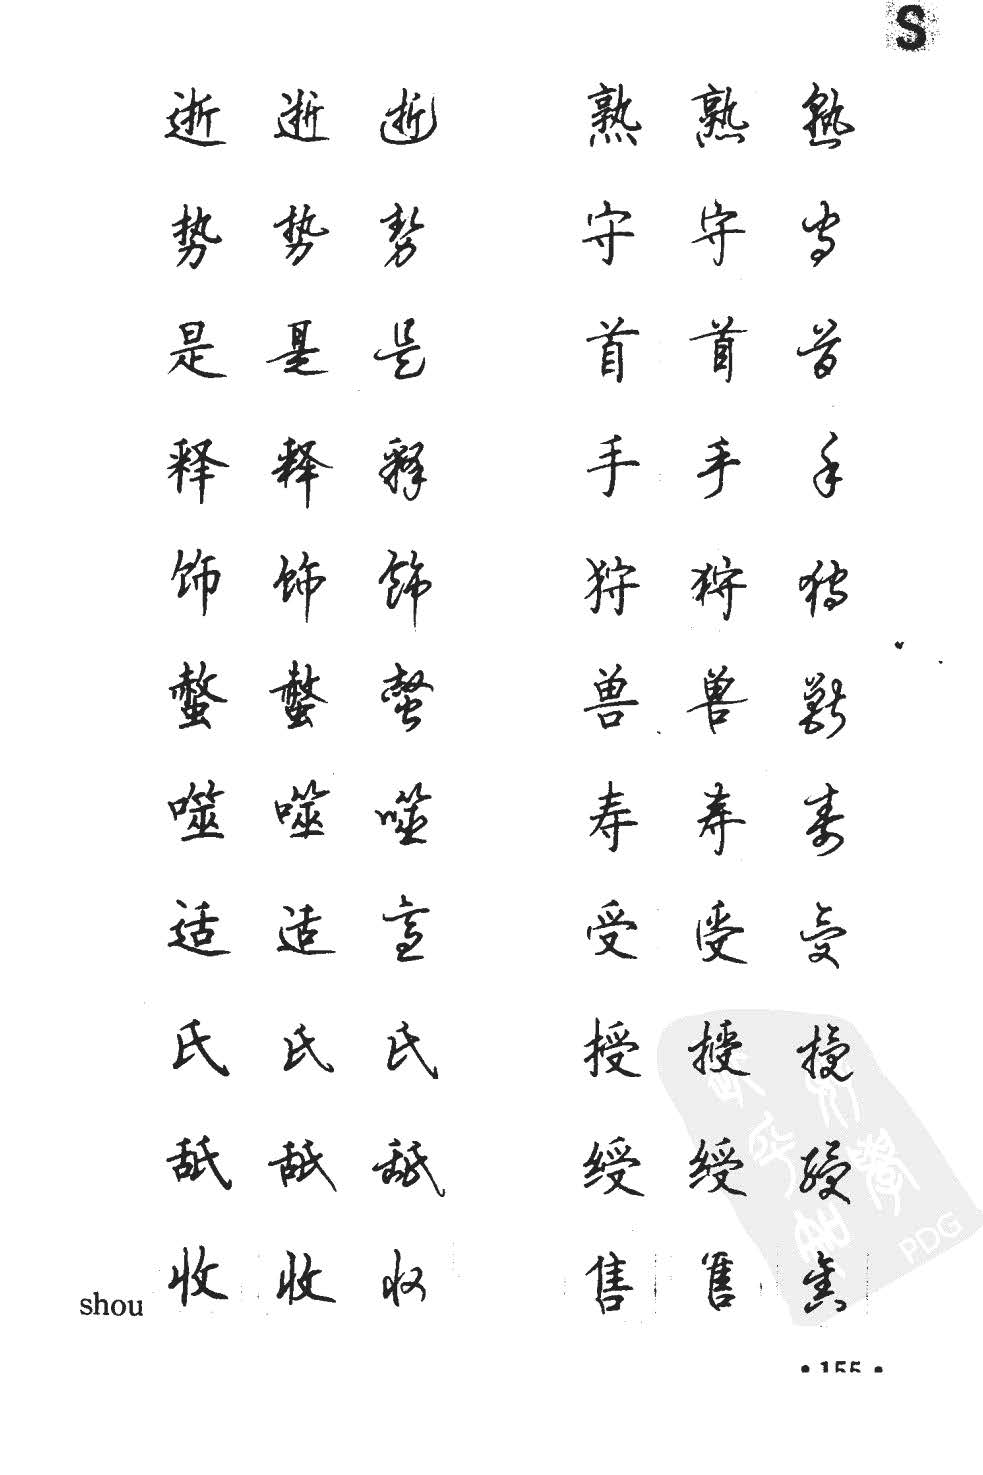 S
逝 逝 逝 熟 熟 熟
势 势 势 守 守 守
是 是 是 首 首 首
释 释 释 手 手 手
饰 饰 飾 狩 狩 狩
螫 螫 螫 兽 兽 獸
噬 噬 噬 寿 寿 寿
适 适 适 受 受 受
氏 氏 氏 授 授 授
舐 舐 舐 绶 绶 绶
shou 收 收 收 售 售 售
PDG
• 155 •